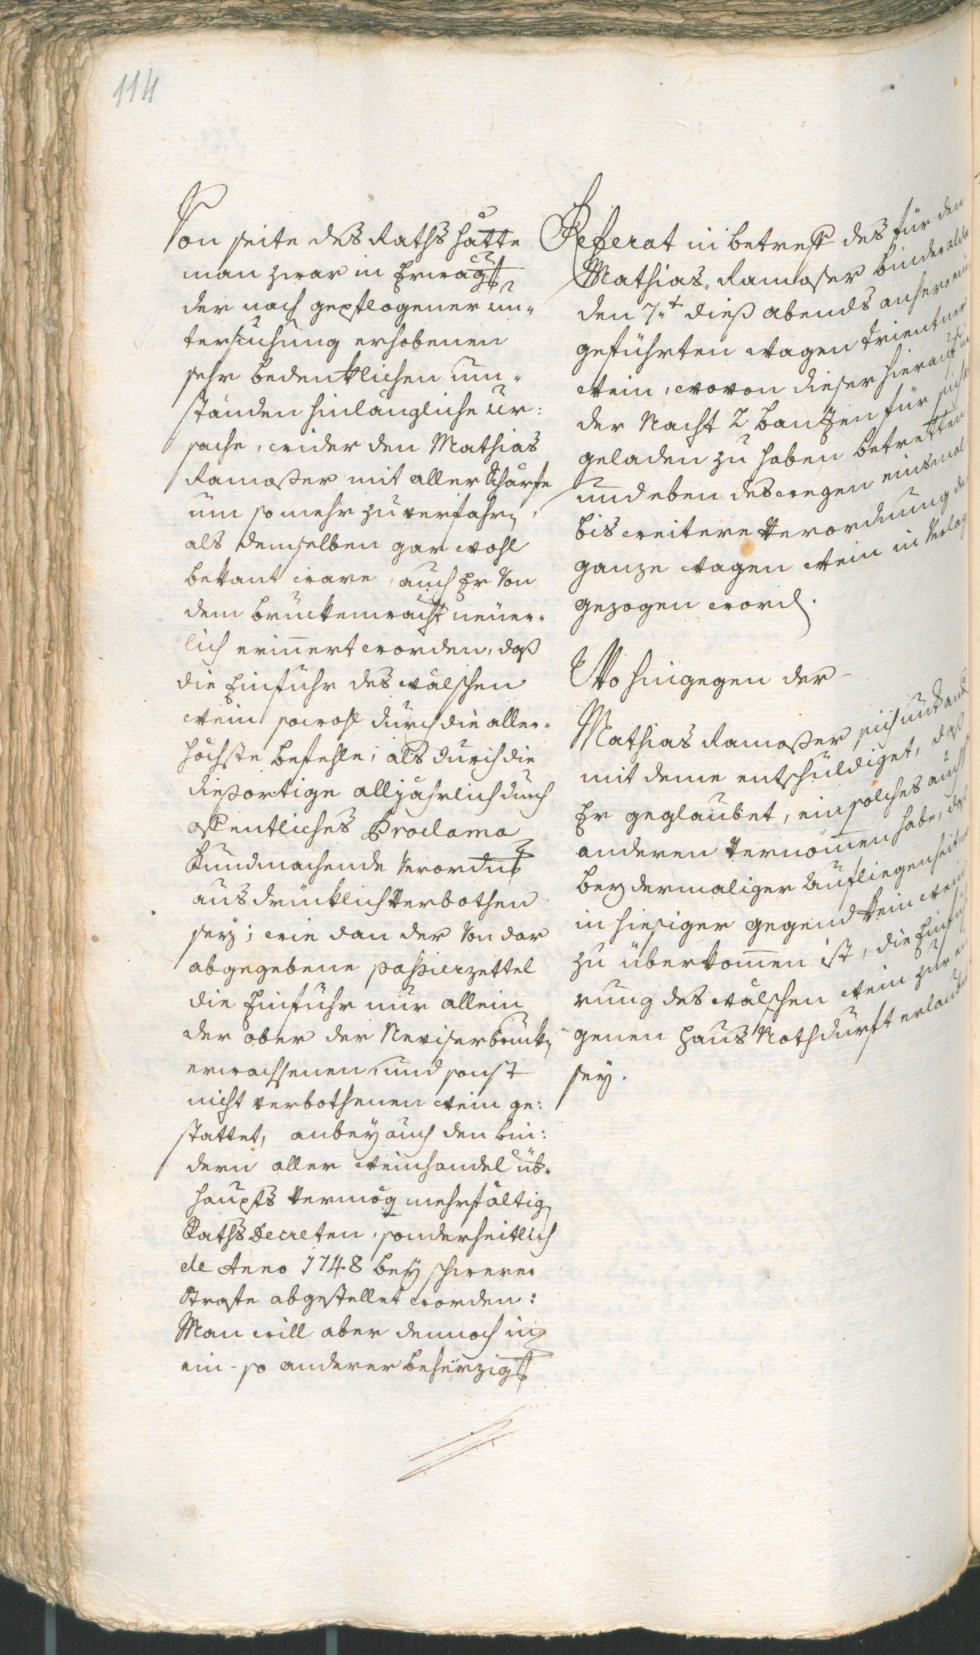 114
Von seite des Raths hätte
man zwar in Erwägg
der nach gepflogener un-
tersuchung erhobenen
sehr bedenklichen um-
ständen hinlängliche Ur:
sache, wider den Mathias
Ramoser mit aller Schärfe
um so mehr zu verfahrn,
als demselben gar wohl
bekant ware, auch Er von
dem bruckenwacht neuer-
lich erinnert worden, daß
die Einfuhr des wälschen
wein sowohl durch die aller-
höchste befehle, als durch die
diesortige alljährlich durch
offentliches Proclama
Kundmachende verordng
ausdrücklich verbothen
seÿ; wie dan der von dar
abgegebene passierzettel
die Einfuhr nur allein
der ober der Neviserbruckn
erwachsenen und sonst
nicht verbothenen wein ge:
stattet, anbeÿ auch den bin:
dern aller weinhandel üb-
haupts vermög mehrfältign
Raths Decreten, sonderheitlich
de Anno 1748 beÿ schwerer
Strafe abgestellet worden:
Man will aber dennoch in
ein- so anderer beherzigg
Referat in betreff des für den
Mathias Ramoser binder alda
den 7.t dieß abends anhero ein
geführten wagen trientner
wein, wovon dieser hierauf in
der Nacht 2 bantzen für sich
geladen zu haben betretten
und eben deswegen einsmal
bis weitere verordnung der
ganze wagen wein in verlag
gezogen word.
Wohingegen der
Mathias Ramoser sich unter and
mit deme entschuldiget, daß
Er geglaubet, ein solches auch
anderen vernommen habe, daß
beÿ dermaliger
in hiesiger gegend kein wein
zu überkommen ist, die Einfüh
rung des wälschen wein zur ei
genen Haus Nothdurft erlaubt
seÿ.